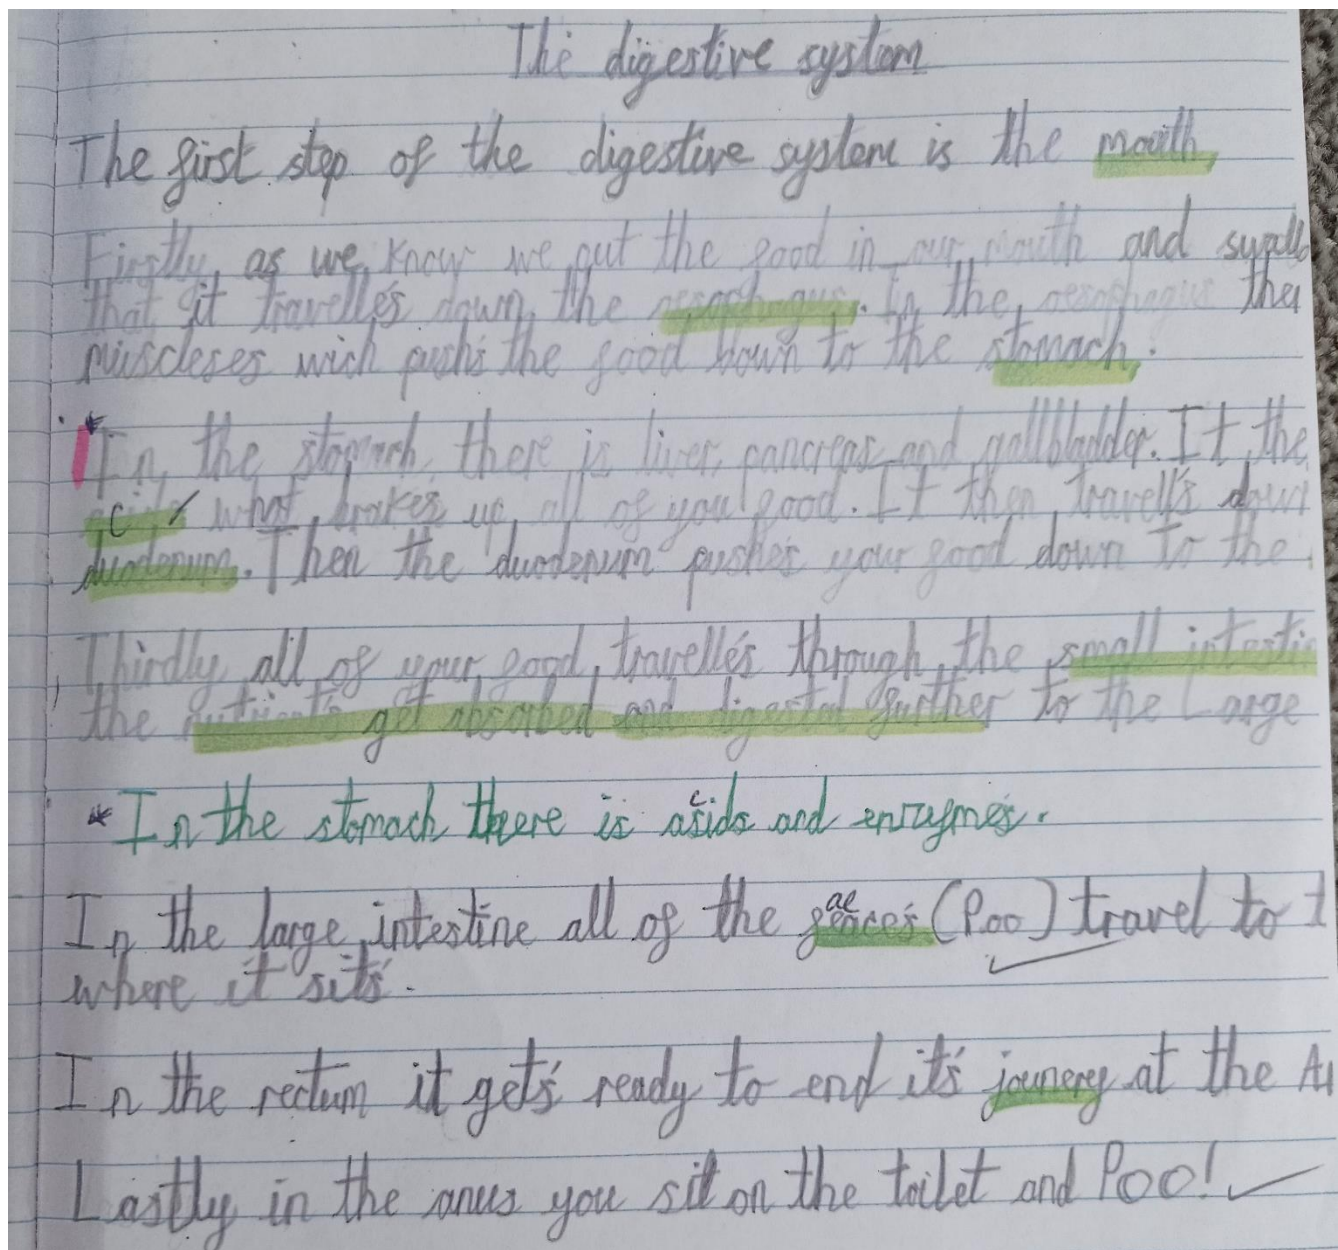 The digestive system
The first step of the digestive system is the mouth,
Firstly, as we know we put the food in our mouth and swallo
that it travelle's down the oesophagus. In the oesophagus ther
muscleses wich push's the food down to the stomach.
*In the stomach there is liver, pancreas and gallbladder. It the
what brakes up all of you food. It then travell's down
duodenum. Then the duodenum pushe's your food down to the
Thirdly all of your food travelle's through the small intestin
the nutrients get absorbed and digested further to the Large
*In the stomach there is acids and enzyme's.
In the large intestine all of the faece's (Poo) travel to t
where it sit's.
In the rectum it get's ready to end it's jounerey at the An
Lastly in the anus you sit on the toilet and Poo!